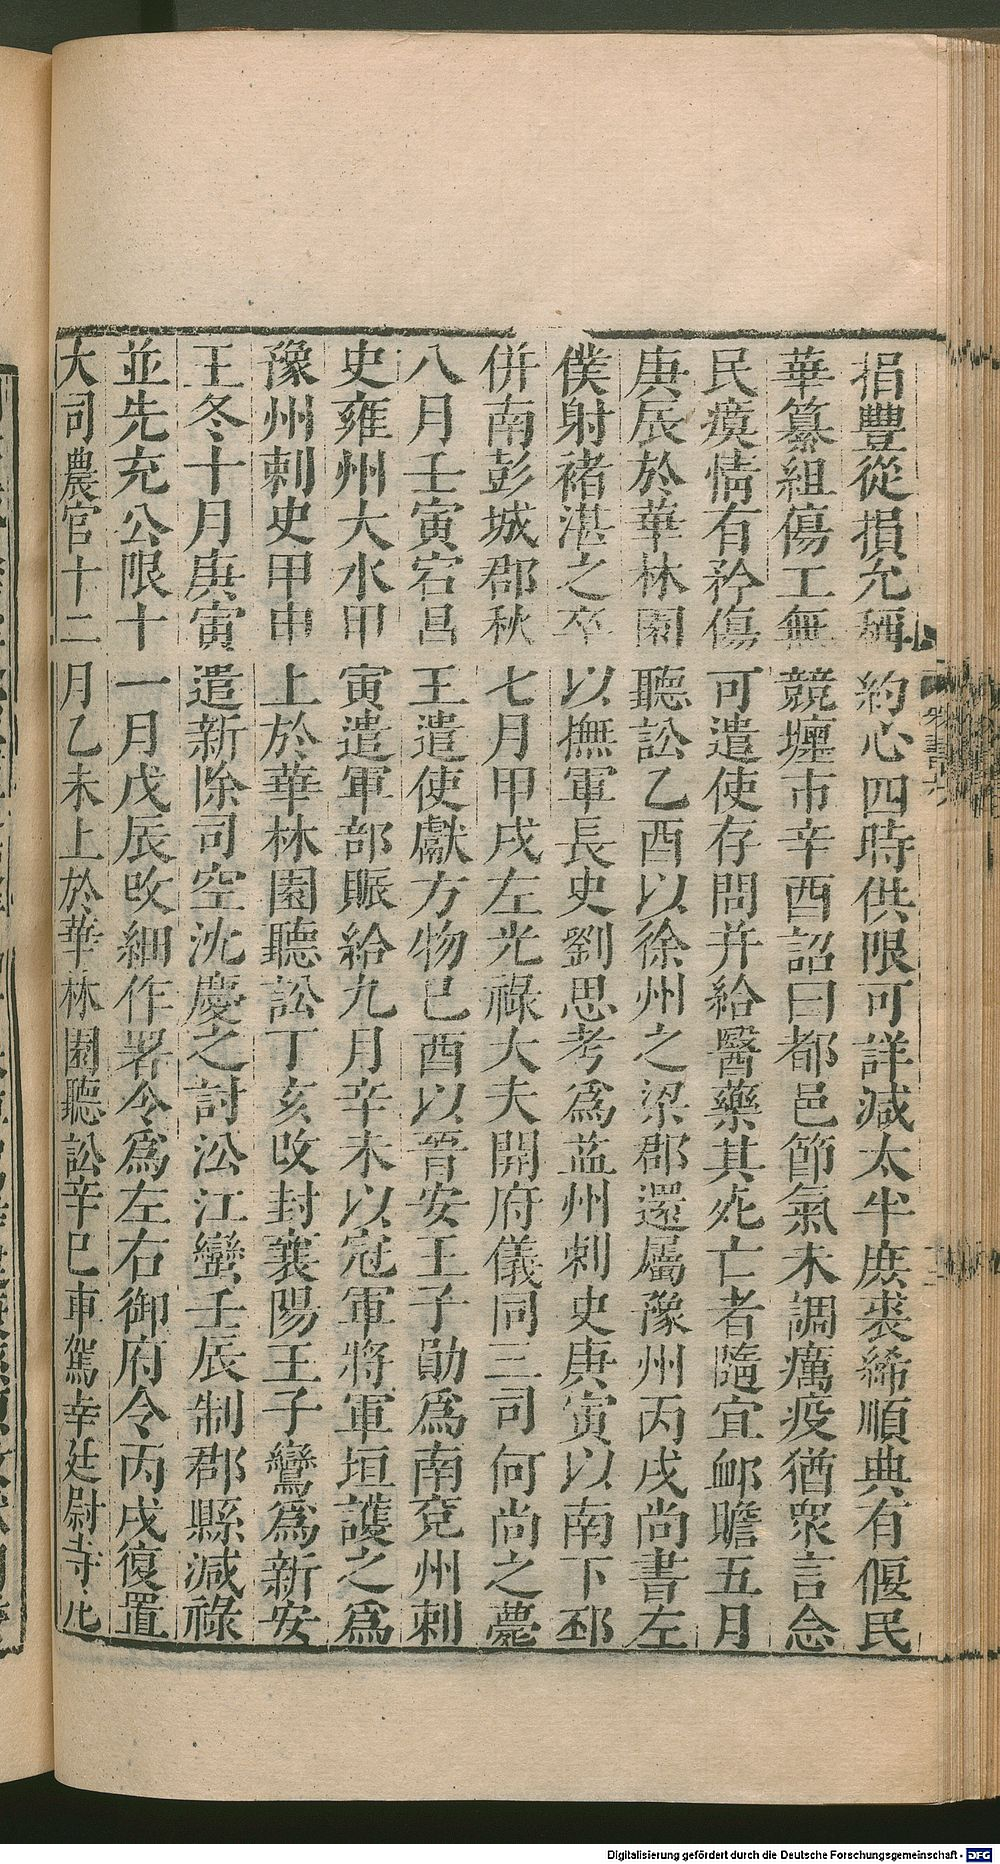 捐豐從損允稱約心四時供限可詳減太半庶裘絺順典有偃民
華纂組傷工無競壥市辛酉詔曰都邑節氣未調癘疫猶衆言念
民瘼情有矜傷可遣使存問并給醫藥其死亡者隨宜衈贍五月
庚辰於華林園聽訟乙酉以徐州之梁郡還屬豫州丙戌尚書左
僕射褚湛之卒以撫軍長史劉思考爲益州刺史庚寅以南下邳
併南彭城郡秋七月甲戌左光祿大夫開府儀同三司何尚之薨
八月壬寅宕昌王遣使獻方物己酉以晉安王子勛爲南兗州刺
史雍州大水甲寅遣軍部賑給九月辛未以冠軍將軍垣護之爲
豫州刺史甲申上於華林園聽訟丁亥改封襄陽王子鸞爲新安
王冬十月庚寅遣新除司空沈慶之討沿江蠻壬辰制郡縣減祿
並先充公限十一月戊辰改細作署令爲左右御府令丙戌復置
大司農官十二月乙未上於華林園聽訟辛巳車駕幸廷尉寺
Digitalisierung gefördert durch die Deutsche Forschungsgemeinschaft - DFG